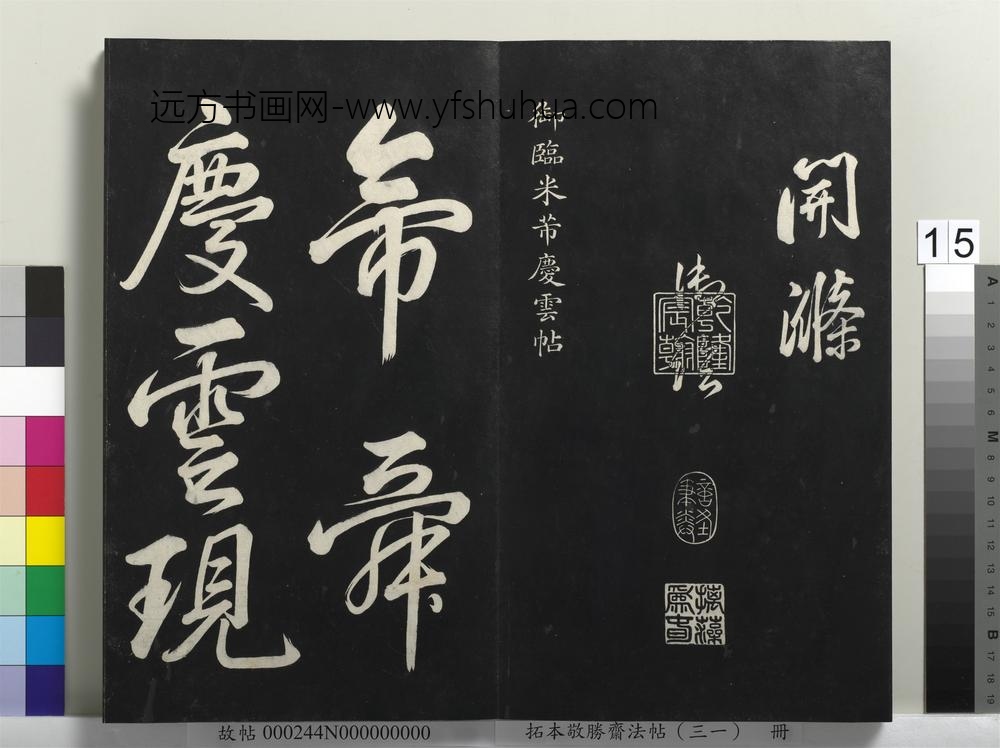 远方书画网-www.yfshuhua.com
開滌
御
乾隆宸翰
摛藻為春
御臨米芾慶雲帖
帝舜
慶雲現
15
故帖 000244N000000000
拓本敬勝齋法帖（三一） 冊
A 1 2 3 4 5 6 M 8 9 10 11 12 13 14 15 B 17 18 19